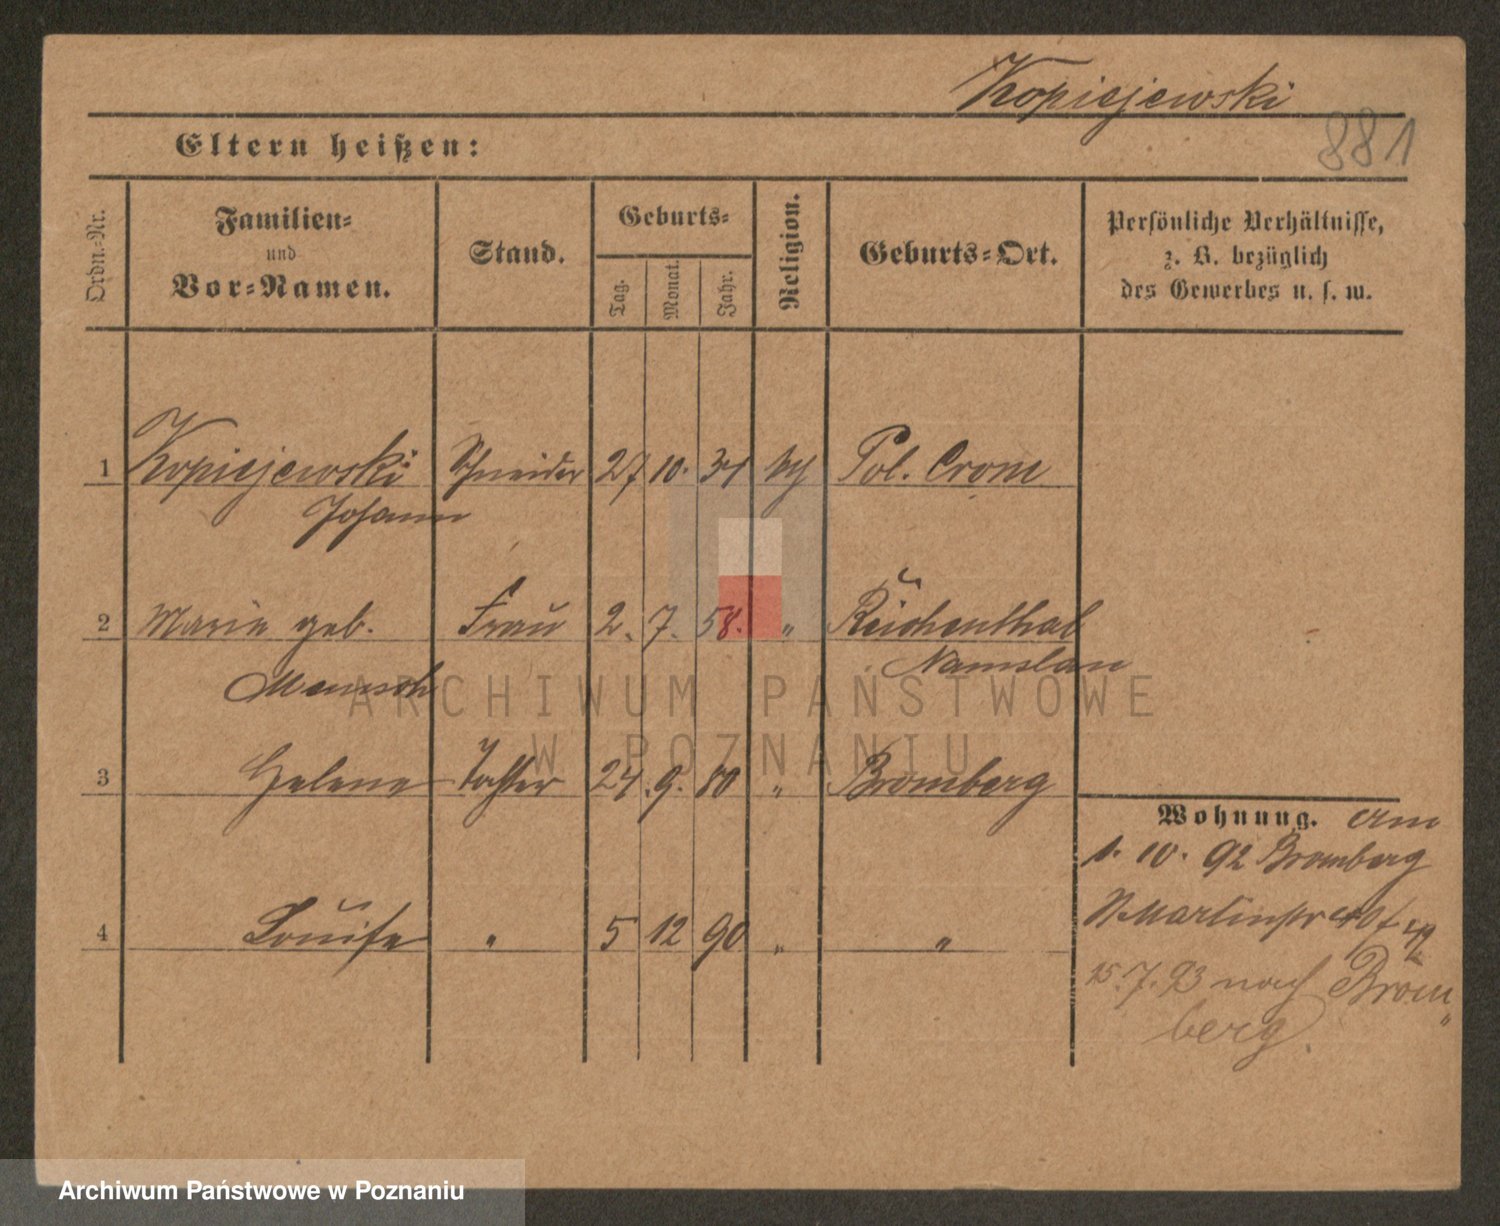 Kopiejewski
881
Eltern heißen:
Ordn.-Nr.
Familien-
und
Vor-Namen.
Stand.
Geburts-
Tag.
Monat.
Jahr.
Religion.
Geburts-Ort.
Persönliche Verhältnisse,
z. B. bezüglich
des Gewerbes u. s. w.
1 Kopiejewski Schneider 27 10. Pol. Crone
Johann
2 Marie geb. Frau 2. 7. 58. " Reichenthal
Namslau
3 Helene Tochter 24. 9. 80 " Bromberg
4 Louise " 5 12 90 " "
Wohnung. am
1. 10. 92 Bromberg
St Martinstr
15.7.93 nach Brom
berg.
ARCHIWUM PAŃSTWOWE
W POZNANIU
Archiwum Państwowe w Poznaniu